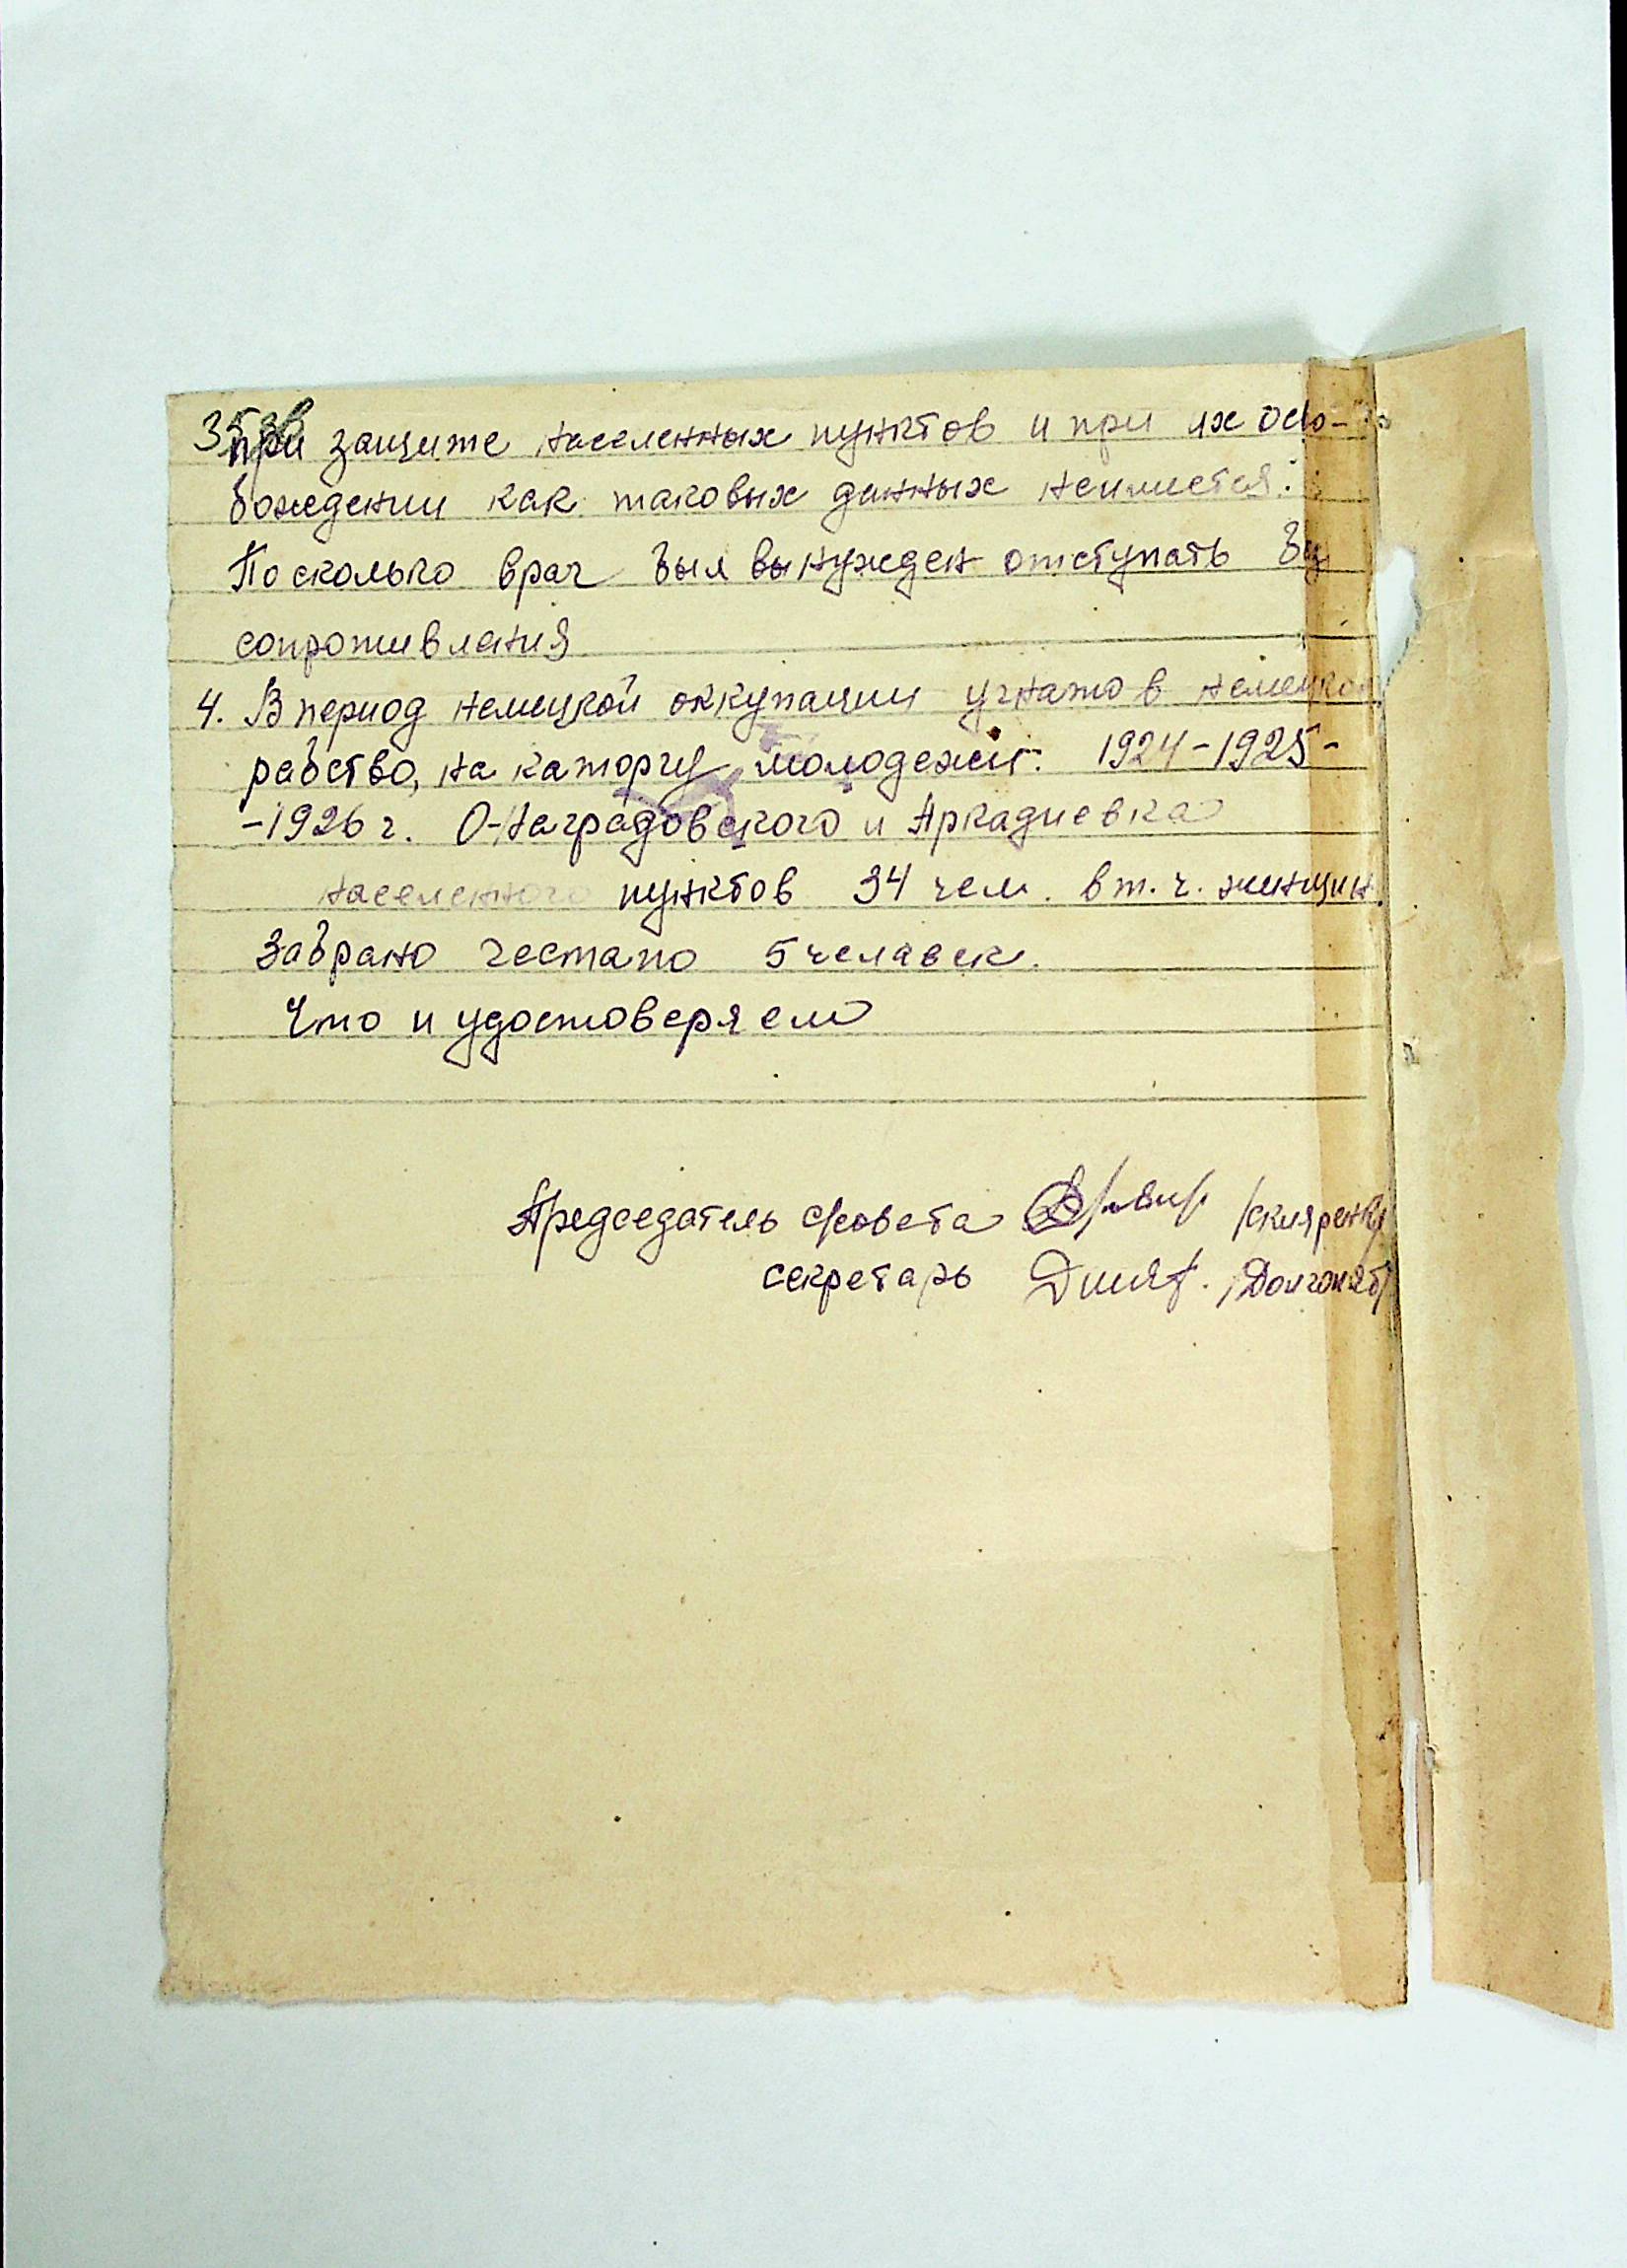 35 зв
при защите населенных пунктов и при их осво-
бождении как таковых данных неимеется.
Посколько враг был вынужден отступать без
сопротивлания
4. В период немецкой оккупации угнато в немецкое
рабство, на каторгу молодежи: 1924-1925-
-1926 г. О-Наградовского и Аркадиевка
населенного пунктов 34 чел. в т. ч. женщин.
Забрано гестапо 5 челавек.
Что и удостоверяем
Председатель с/совета /скляренко
секретарь